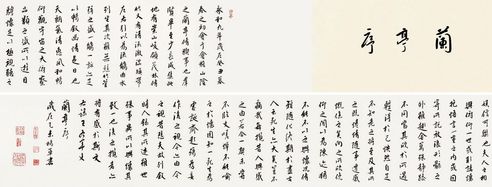 蘭亭序
永和九年歲在癸丑暮
春之初會于會稽山陰
之蘭亭修稧事也羣
賢畢至少長咸集此
地有崇山峻領茂林修
竹又有清流激湍暎帶
左右引以為流觴曲水
列坐其次雖無絲竹管
弦之盛一觴一詠亦足
以暢敘幽情是日也
天朗氣清惠風和暢
仰觀宇宙之大俯察
品類之盛所以遊目
騁懷足以極視聽之
娛信可樂也夫人之相
與俯仰一世或取諸懷
抱悟言一室之內或因
寄所託放浪形骸之
外雖趣舍萬殊靜躁
不同當其欣於所遇
暫得於己快然自足
不知老之將至及其所
之既惓情隨事遷感
慨係之矣向之所欣俛
仰之間以為陳迹猶
不能不以之興懷況脩
短隨化終期於盡古
人云死生亦大矣豈不
痛哉每攬昔人興感
之由若合一契未嘗
不臨文嗟悼不能喻
之於懷固知一死生為
虛誕齊彭殤為妄
作後之視今亦由今
之視昔悲夫故列敘
時人錄其所述雖世
殊事異所以興懷其
致一也後之攬者亦
將有感於斯文
蘭亭序
歲在